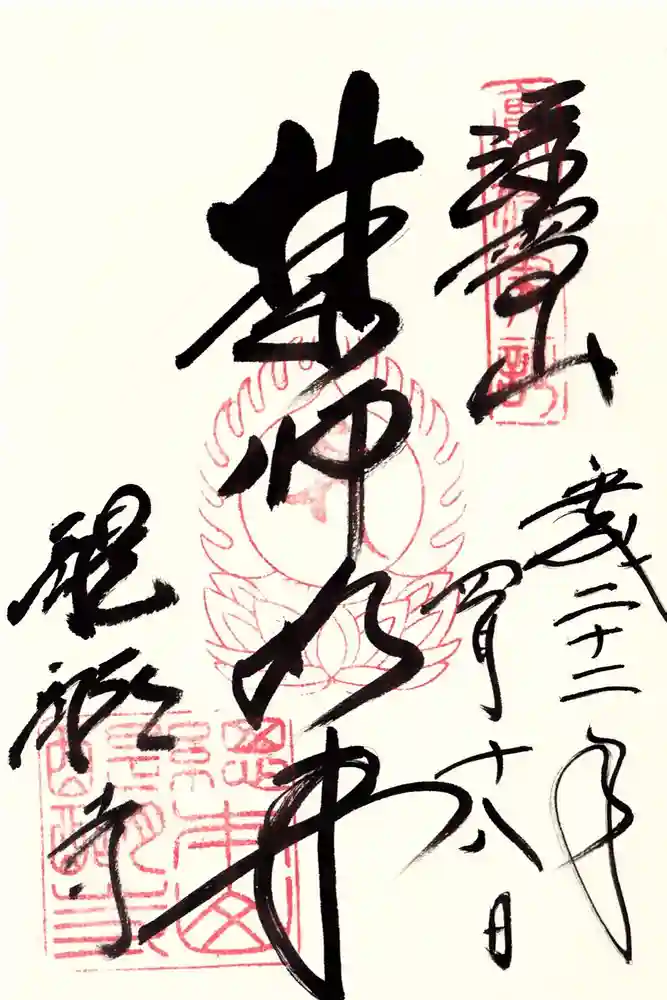 深雪山
平成二十二年
四月十八日
薬師如来
醍醐寺